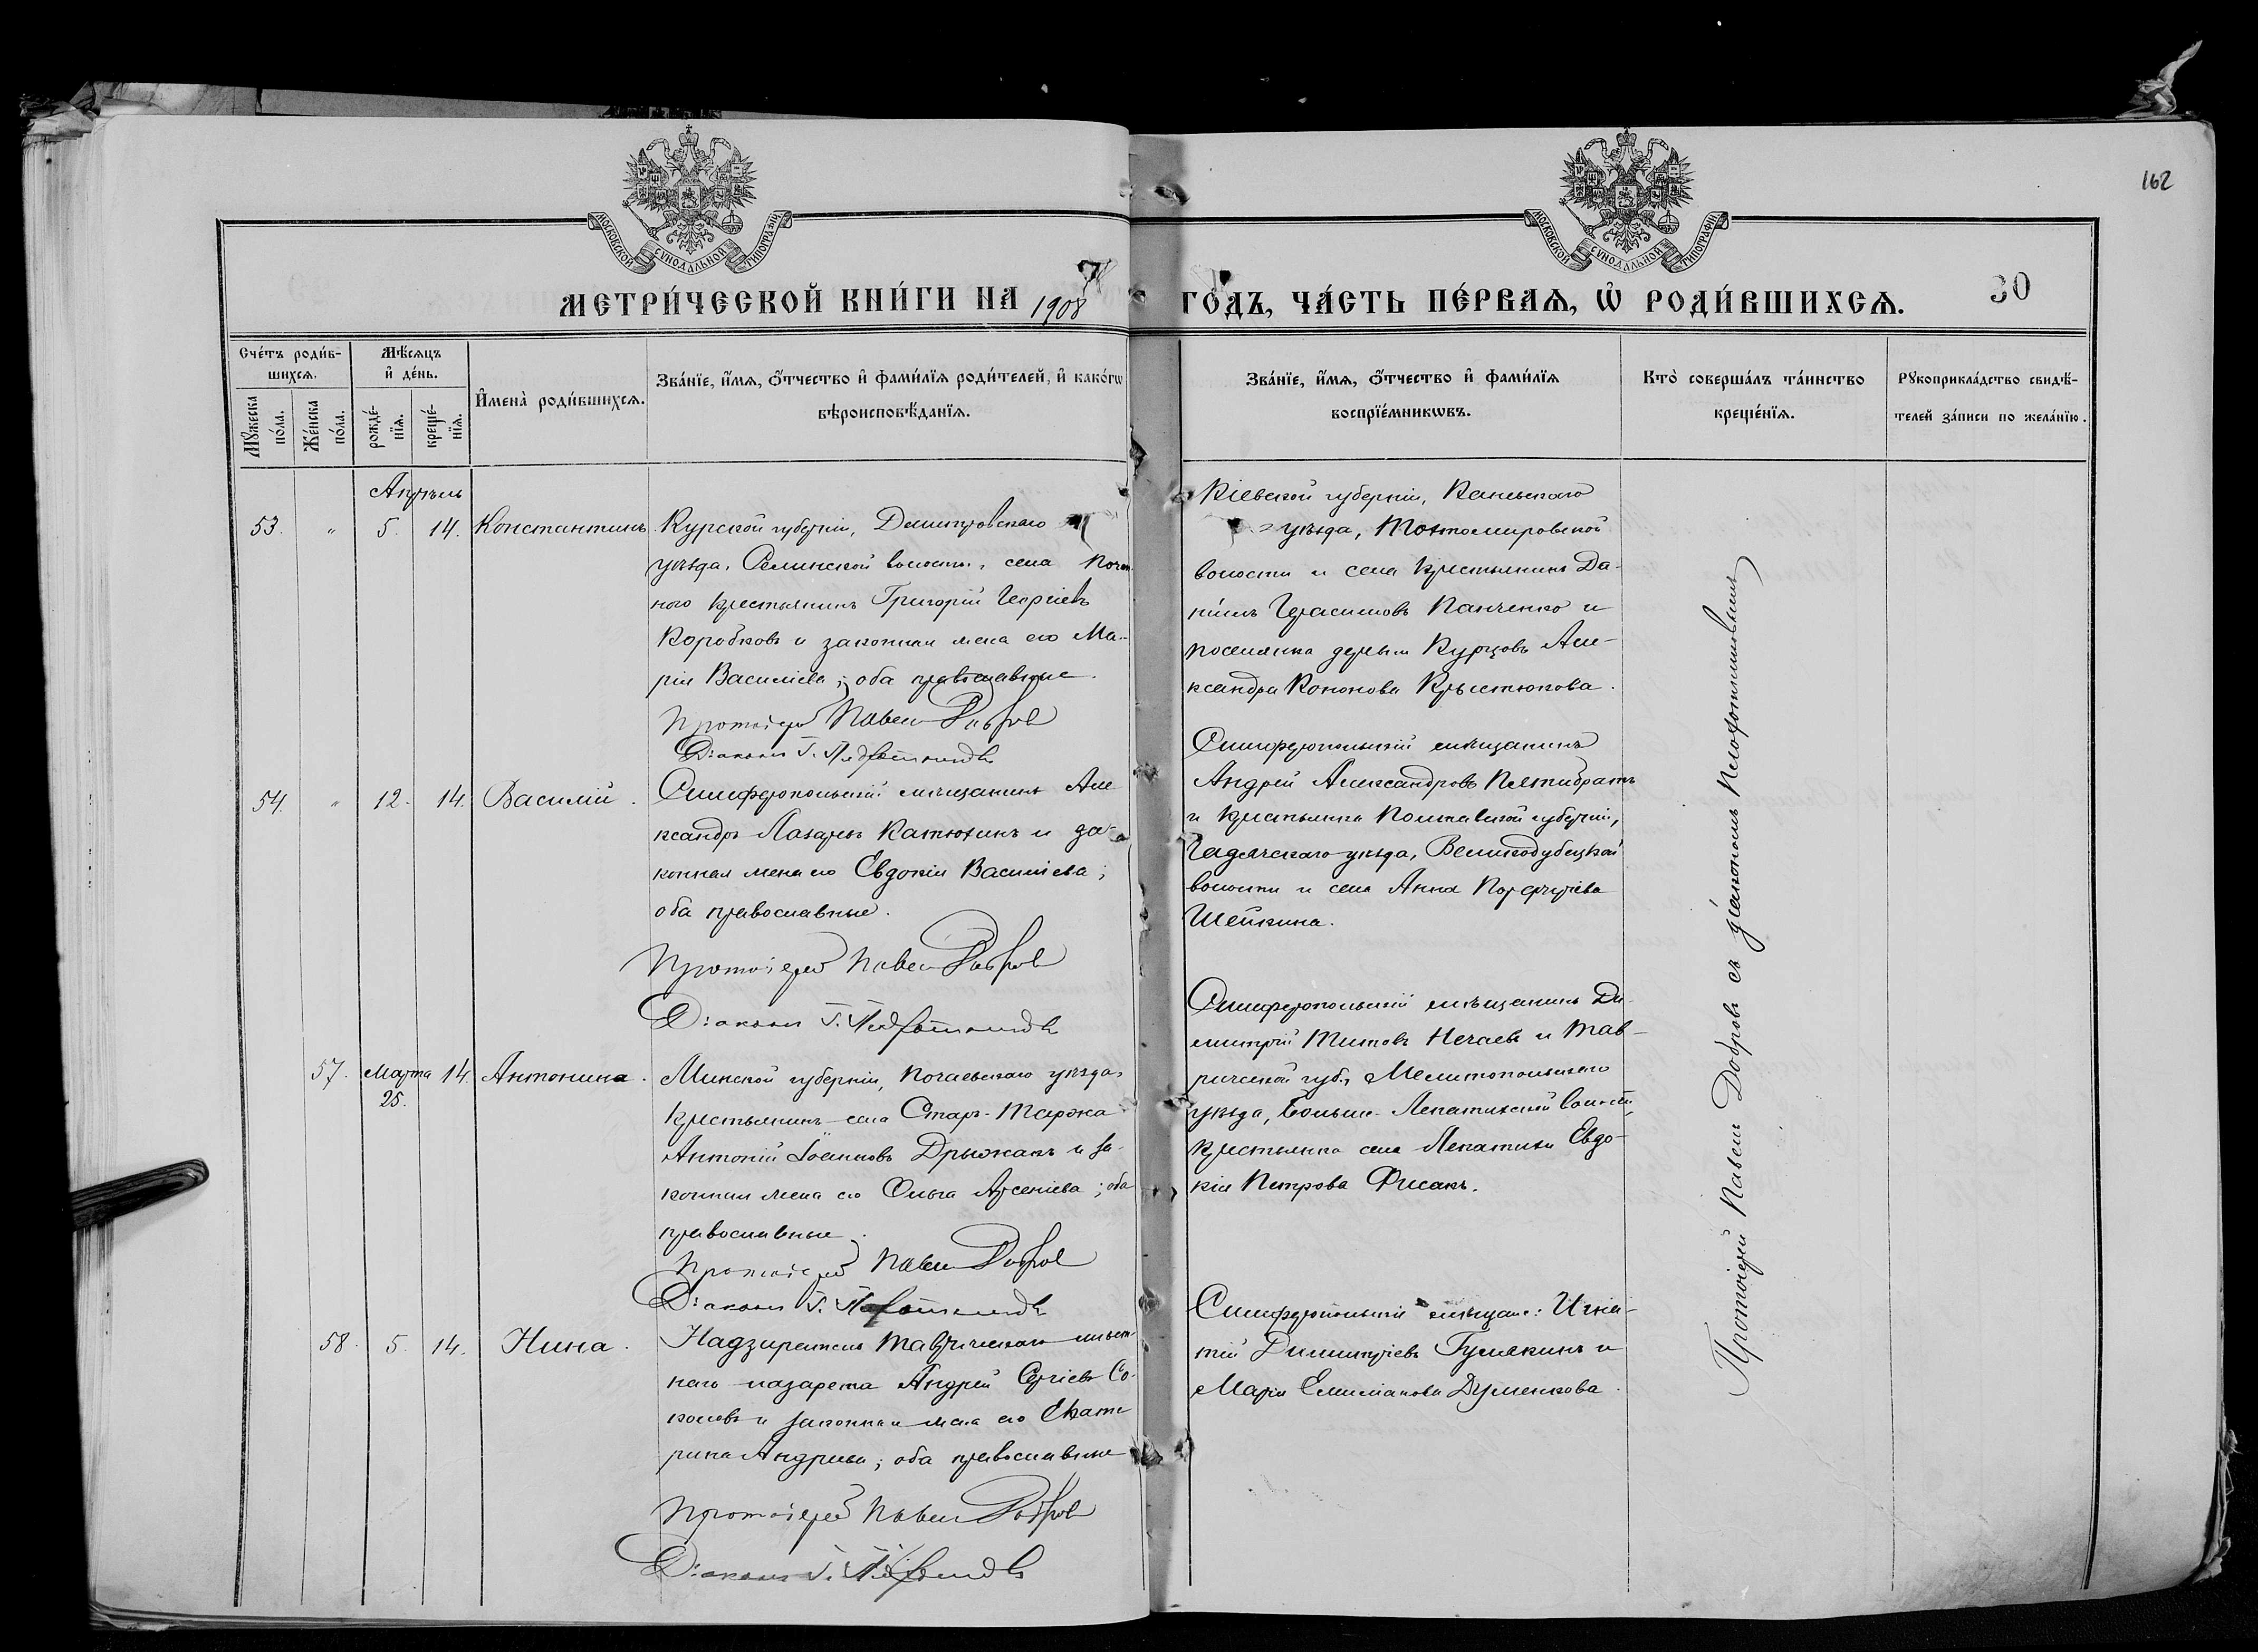 162
МОСКОВСКОЙ СѴНОДАЛЬНОЙ ТИПОГРАФІИ
МОСКОВСКОЙ СѴНОДАЛЬНОЙ ТИПОГРАФІИ
МЕТРИ́ЧЕСКОЙ КНИ́ГИ НА 1908 ГО́ДЪ, ЧА́СТЬ ПЕ́РВАѦ, Ѡ РОДИ́ВШИХСѦ.
30
Сче́тъ роди́в-
шихсѧ.
Мꙋ́жеска по́ла.
Же́нска по́ла.
Мѣ́сѧцъ и҆ де́нь.
рожде́-нїѧ.
креще́-нїѧ.
И҆мена̀ роди́вшихсѧ.
Зва́нїе, и҆́мѧ, ѻ҆́тчество и҆ фами́лїѧ роди́телей, и҆ како́гѡ
вѣроисповѣ́данїѧ.
Зва́нїе, и҆́мѧ, ѻ҆́тчество и҆ фами́лїѧ
воспрїе́мникѡвъ.
Кто̀ соверша́лъ та́инство
креще́нїѧ.
Рꙋкоприкла́дство свидѣ́-
телей за́писи по жела́нїю.
Апрѣль
53. " 5. 14. Константинъ
Курской губерніи, Димитровскаго
уѣзда, волости, села
ного крестьянинъ Григорій Георгіевъ
Коробковъ и законная жена его Ма-
рія Василіева; оба православные.
Протоіерей Павелъ Добровъ
Діаконъ
Кіевской губерніи, Каневскаго
уѣзда, Тохтомировской
волости и села крестьянинъ Да-
ніилъ Герасимовъ Панченко и
поселянка деревни Курцовъ Але-
ксандра Кононова
54. " 12. 14. Василій.
Симферопольскій мѣщанинъ Але
ксандръ Лазаревъ Катюхинъ и за-
конная жена его Евдокія Василіева;
оба православные.
Протоіерей Павелъ Добровъ
Діаконъ
Симферопольскій мѣщанинъ
Андрей Александровъ Пятибратъ
и крестьянка Полтавской губерніи,
Гадячскаго уѣзда, Великобудецкой
волости и села Анна Порфиріева
Шейкина.
57. Марта 25. 14. Антонина.
Минской губерніи, уѣзда,
крестьянинъ села
Антоній Іоанновъ Дрыжакъ и за-
конная жена его Ольга Арсеніева; оба
православные.
Протоіерей Павелъ Добровъ
Діаконъ
Симферопольскій мѣщанинъ Ди-
митрій Титовъ Нечаевъ и Тав-
рической губ., Мелитопольскаго
уѣзда, Больше-Лепатихской волости,
крестьянка села Лепатихи Евдо-
кія Петрова Фисакъ.
58. 5. 14. Нина.
Надзиратель Таврическаго
наго лазарета Андрей Сергіевъ Со-
коловъ и законная жена его Екате
рина Андреева; оба православные
Протоіерей Павелъ Добровъ
Діаконъ
Симферопольскіе мѣщане: Игна-
тій Димитріевъ Гулякинъ и
Марія Емиліанова Думенкова.
Протоіерей Павелъ Добровъ съ діакономъ